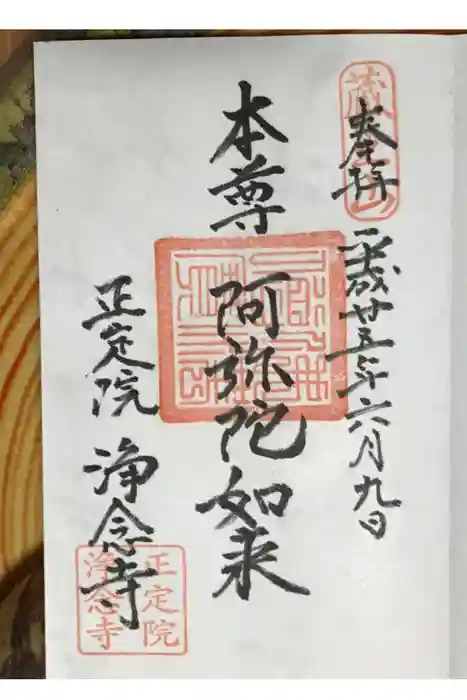 奉拝
平成廿五年六月九日
本尊 阿弥陀如来
正定院 浄念寺
正定院
浄念寺